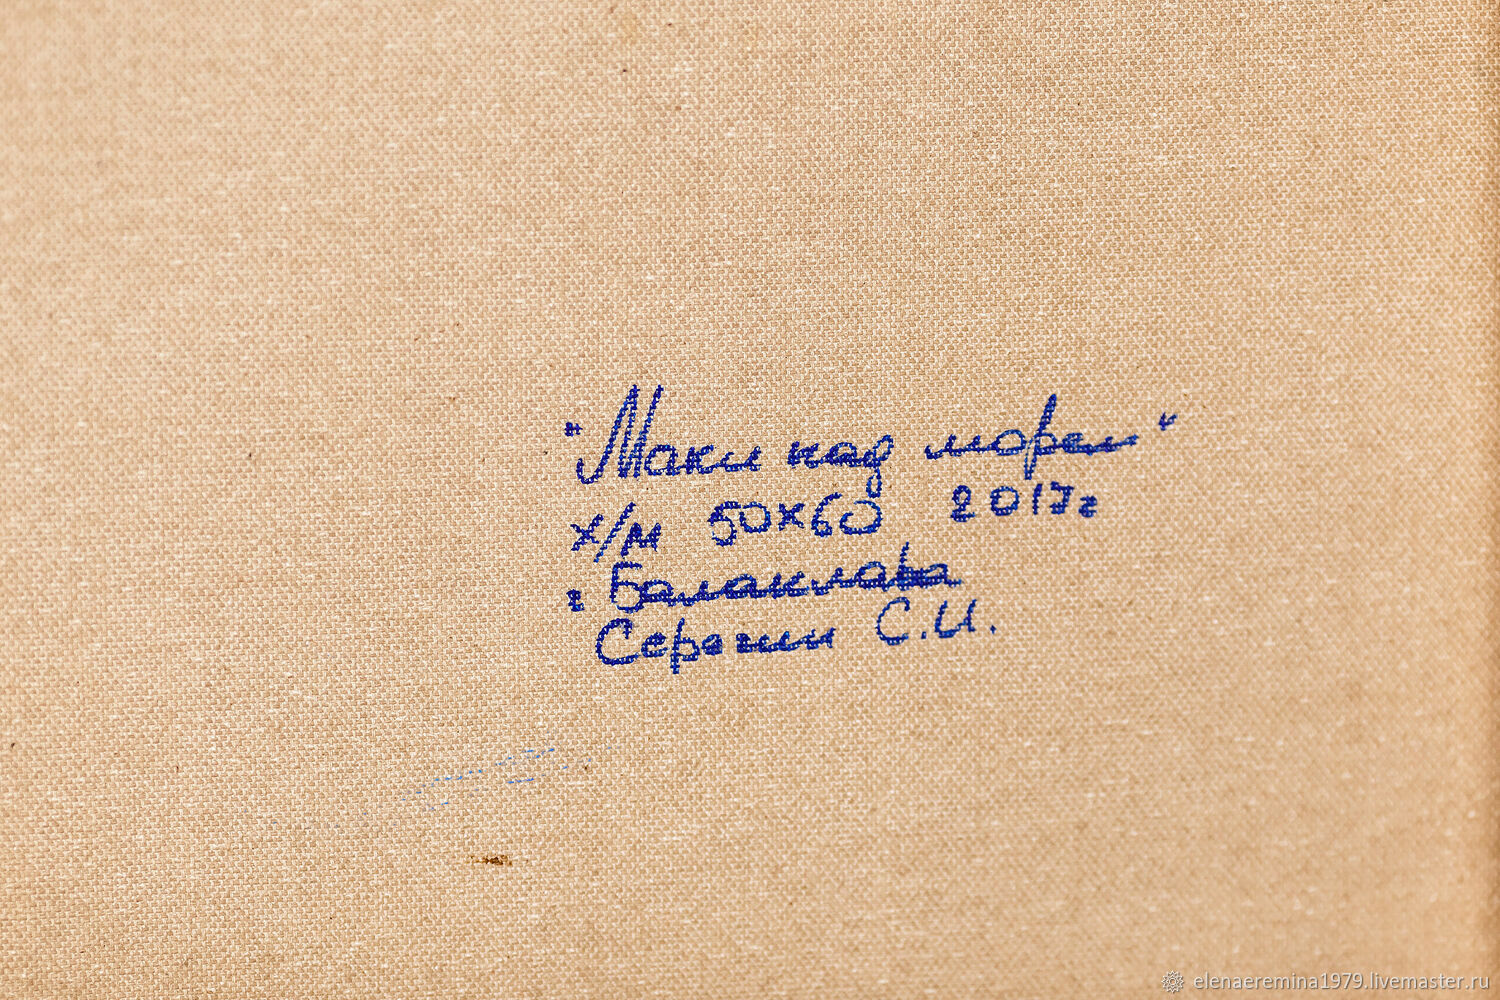 "Маки над морем"
х/м 50х60 2017г
г Балаклава
Серогин С.И.
elenaeremina1979.livemaster.ru